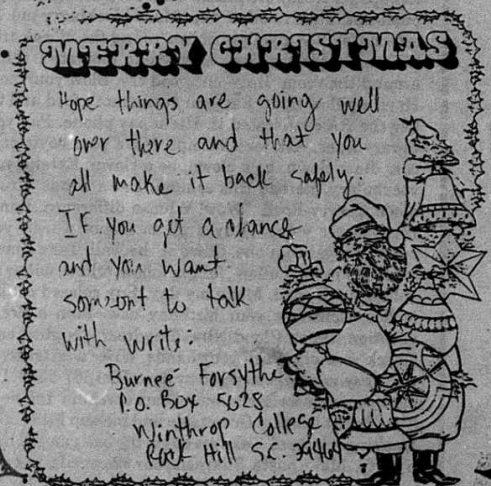 MERRY CHRISTMAS
Hope things are going well
over there and that you
all make it back safely.
If you get a chance
and you want
someont to talk
with write:
Burneé Forsythe
P.O. Box 5028
Winthrop College
Rock Hill SC.